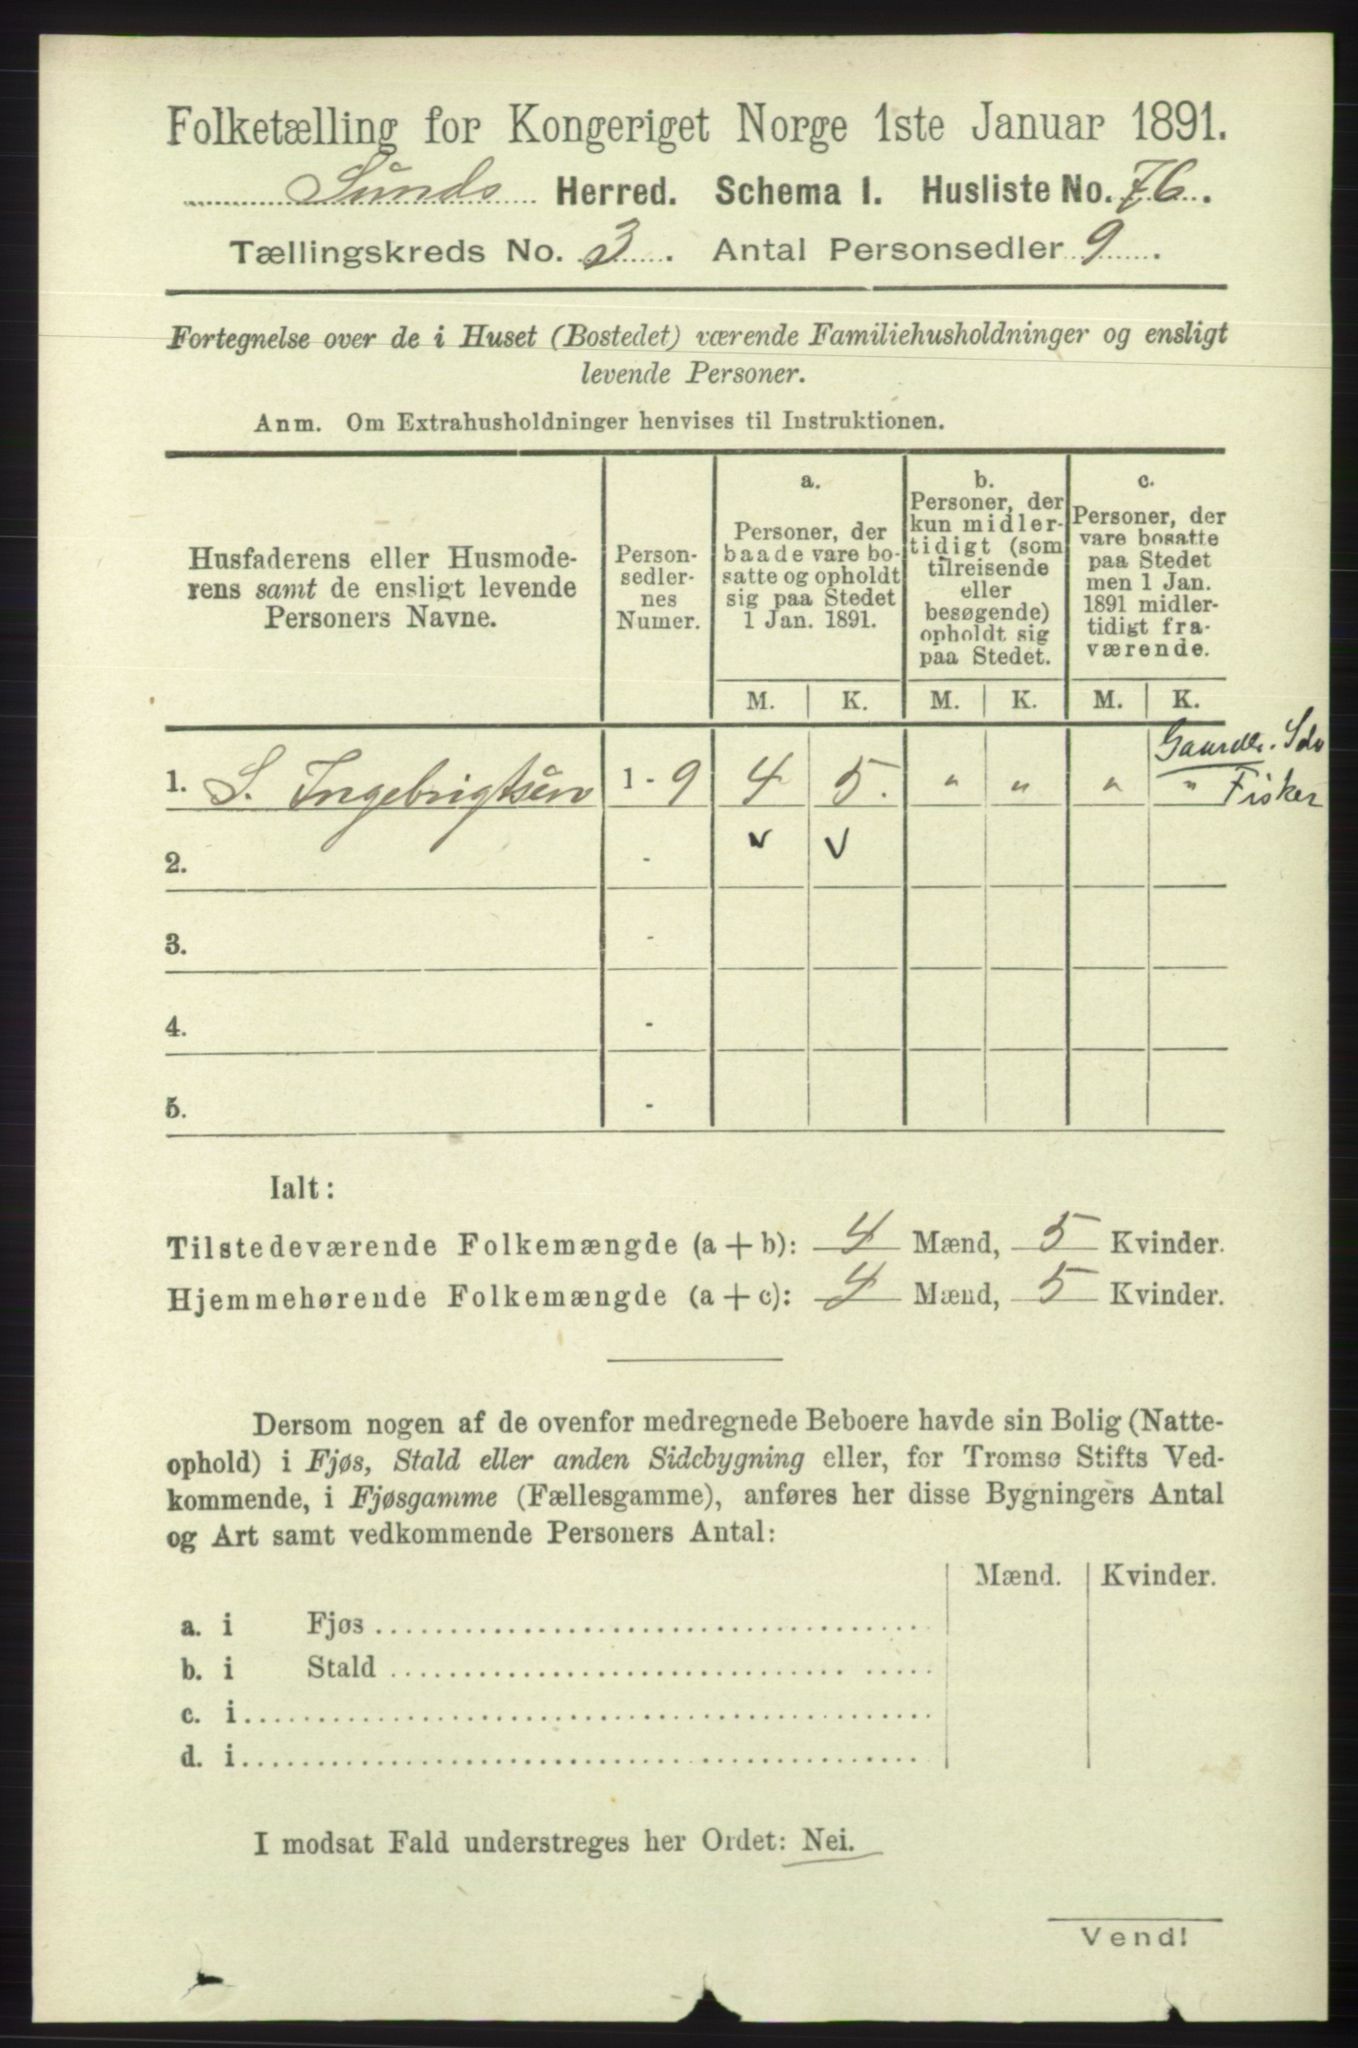 Folketælling for Kongeriget Norge 1ste Januar 1891.
Sunds Herred. Schema I. Husliste No. 76.
Tællingskreds No. 3. Antal Personsedler 9.
Fortegnelse over de i Huset (Bostedet) værende Familiehusholdninger og ensligt
levende Personer.
Anm. Om Extrahusholdninger henvises til Instruktionen.
Husfaderens eller Husmode-
rens samt de ensligt levende
Personers Navne.
Person-
sedler-
nes
Numer.
a.
Personer, der
baade vare bo-
satte og opholdt
sig paa Stedet
1 Jan. 1891.
b.
Personer, der
kun midler-
tidigt (som
tilreisende
eller
besøgende)
opholdt sig
paa Stedet.
c.
Personer, der
vare bosatte
paa Stedet
men 1 Jan.
1891 midler-
tidigt fra-
værende.
M. K. M. K. M. K.
Gaardbr. Selv
1. S. Ingebrigtsen 1 - 9 4 5. " " " " Fisker
2. - v v
3. -
4. -
5. -
Ialt:
Tilstedeværende Folkemængde (a + b): 4 Mænd, 5 Kvinder.
Hjemmehørende Folkemængde (a + c): 4 Mænd, 5 Kvinder.
Dersom nogen af de ovenfor medregnede Beboere havde sin Bolig (Natte-
ophold) i Fjøs, Stald eller anden Sidebygning eller, for Tromsø Stifts Ved-
kommende, i Fjøsgamme (Fællesgamme), anføres her disse Bygningers Antal
og Art samt vedkommende Personers Antal:
Mænd. Kvinder.
a. i Fjøs
b. i Stald
c. i
d. i
I modsat Fald understreges her Ordet: Nei.
Vend!